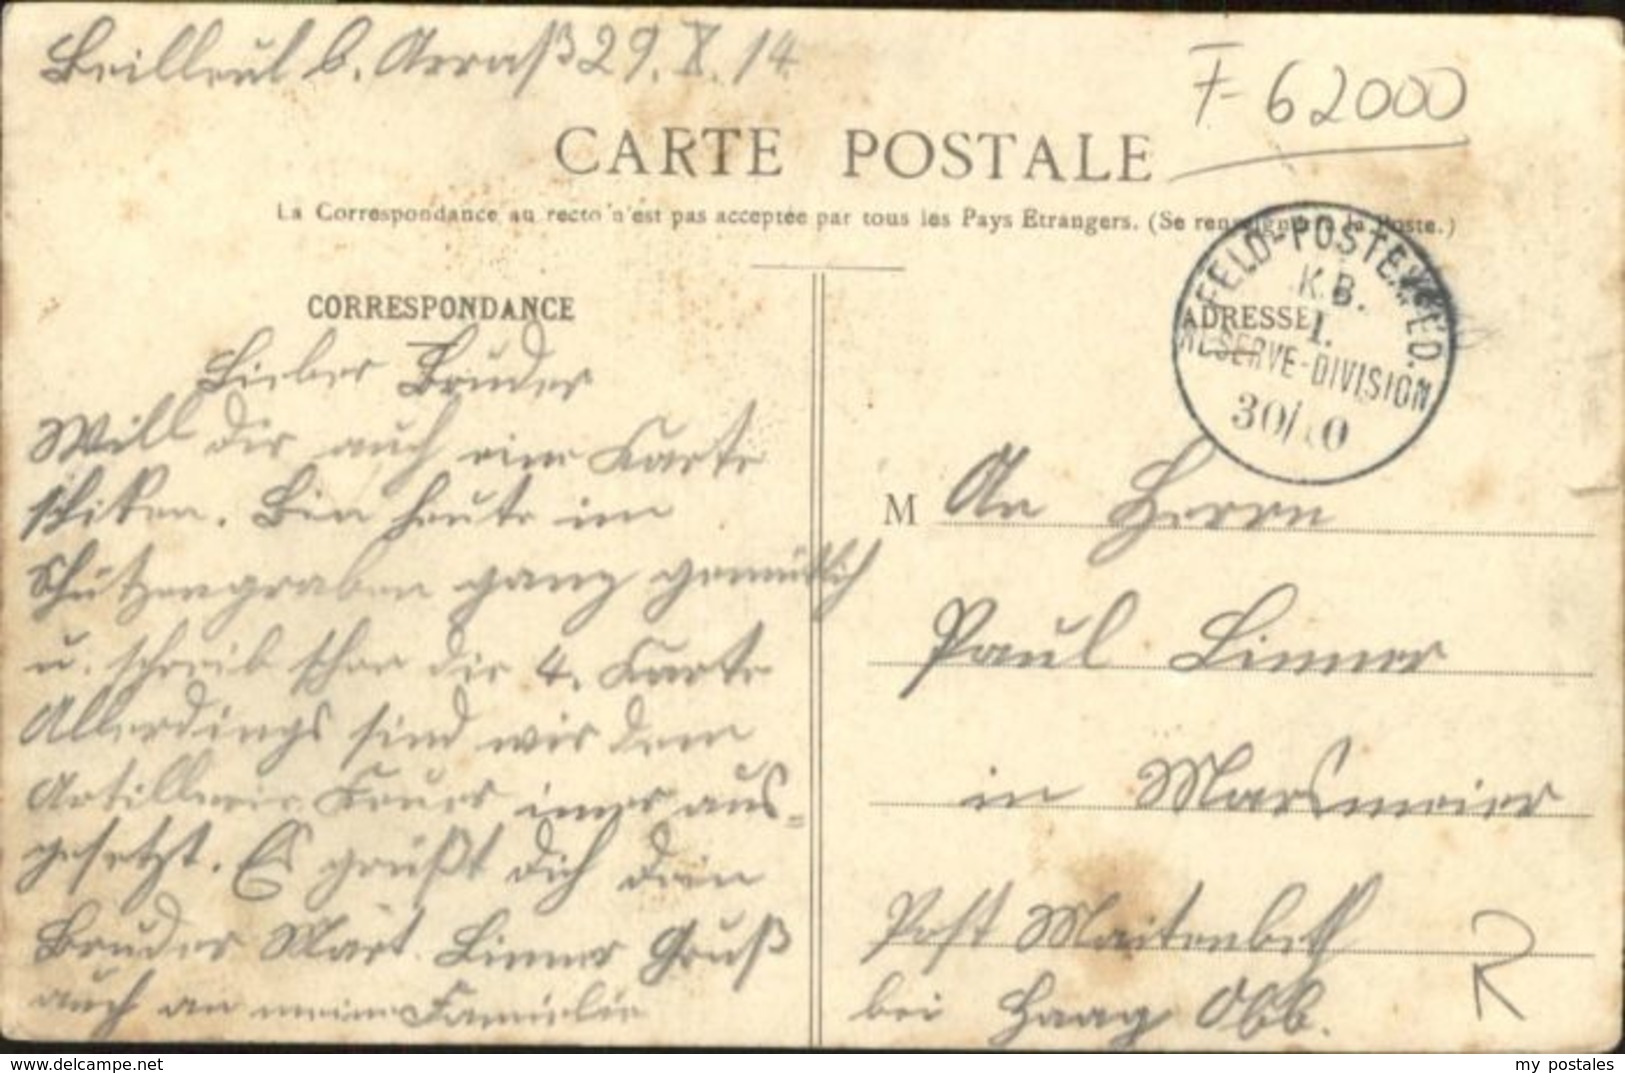 Beilleul b. Arraß 29. X. 14
F-62000
CARTE POSTALE
La Correspondance au recto n'est pas acceptée par tous les Pays Etrangers. (Se renseigner à la Poste.)
CORRESPONDANCE
Lieber Bruder
Will dir auch eine Karte
schiken. Bin heute im
Schützengraben ganz gemütlich
u. schreib schon die 4. Karte
Allerdings sind wir dem
Artillerie Feuer imer aus=
gesetzt. Es grüßt dich dein
Bruder Mart. Linner Gruß
auch an meine Familie
ADRESSE
FELD-POSTEXPED.
K.B.
1.
RESERVE-DIVISION
30/10
M An Herrn
Paul Linner
in Marsmeier
Post Maitenbeth
bei Haag Obb.
my postales